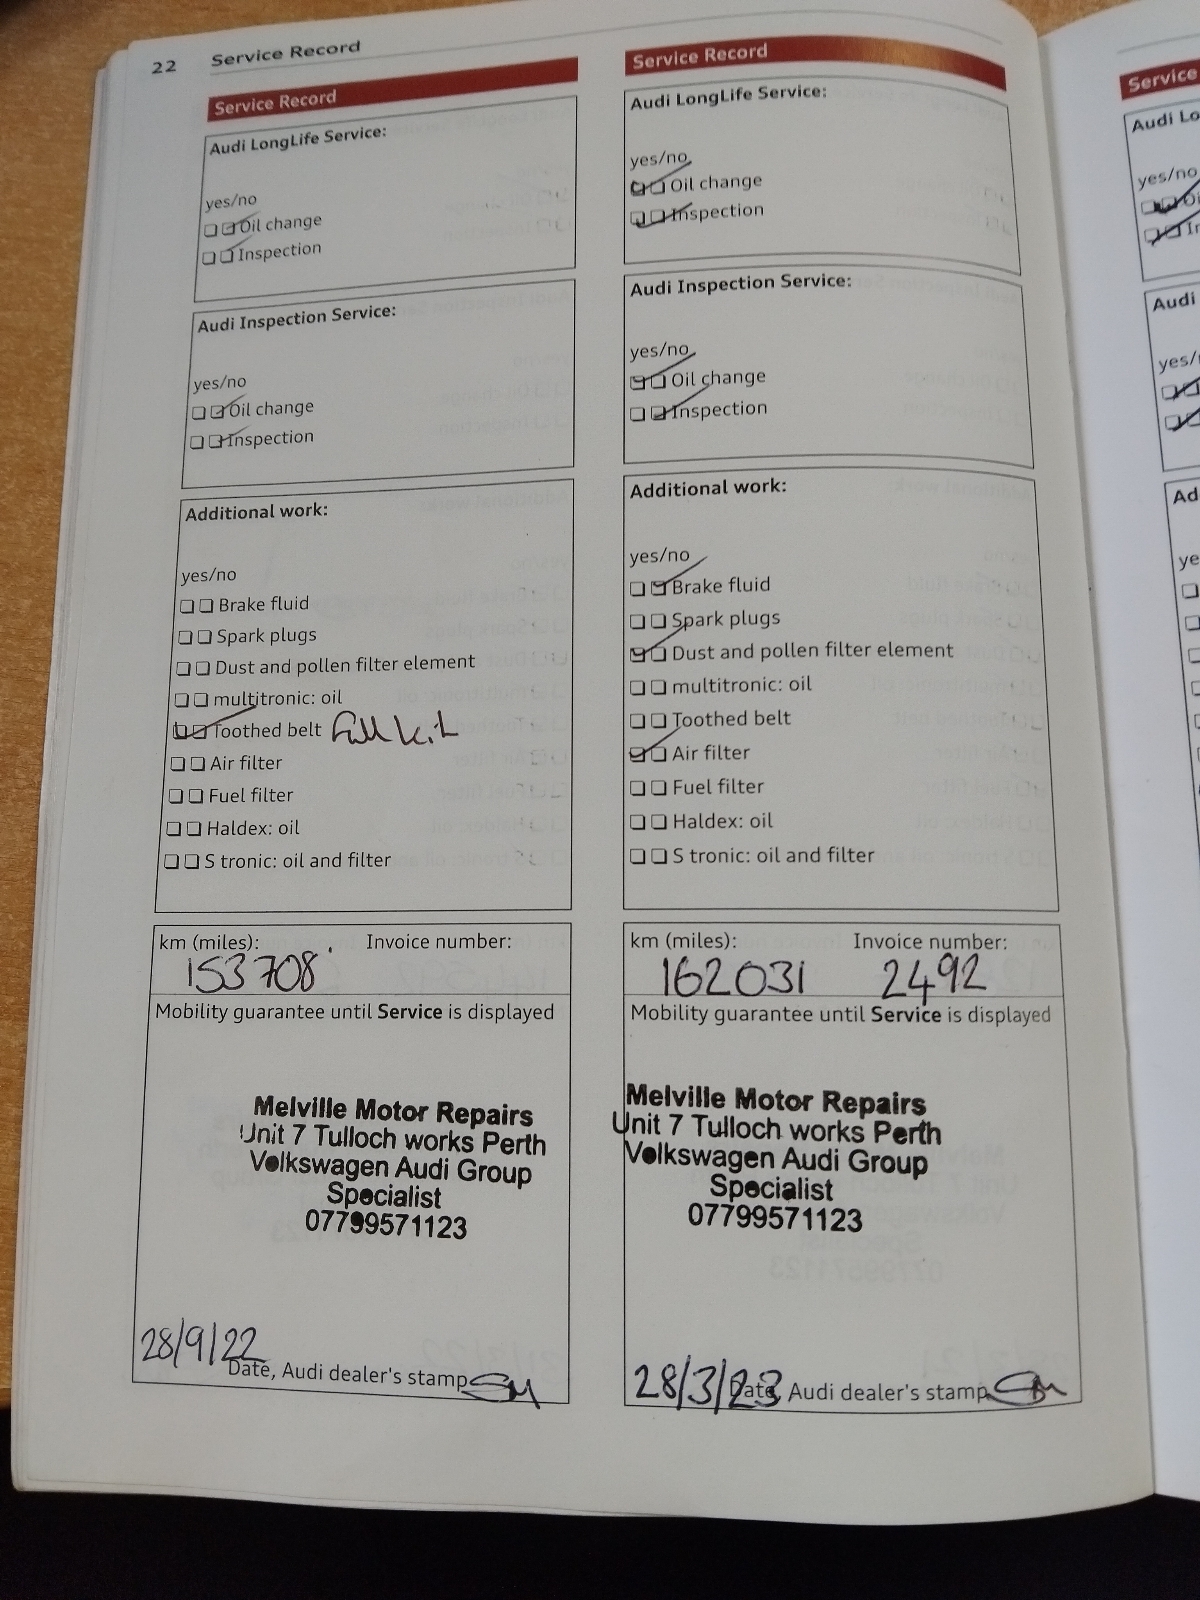 22 Service Record
Service Record
Audi LongLife Service:
yes/no
Oil change
Inspection
Audi Inspection Service:
yes/no
Oil change
Inspection
Additional work:
yes/no
Brake fluid
Spark plugs
Dust and pollen filter element
multitronic: oil
Toothed belt Full kit
Air filter
Fuel filter
Haldex: oil
S tronic: oil and filter
km (miles): Invoice number:
153708
Mobility guarantee until Service is displayed
Melville Motor Repairs
Unit 7 Tulloch works Perth
Volkswagen Audi Group
Specialist
07799571123
28/9/22
Date, Audi dealer's stamp
Service Record
Audi LongLife Service:
yes/no
Oil change
Inspection
Audi Inspection Service:
yes/no
Oil change
Inspection
Additional work:
yes/no
Brake fluid
Spark plugs
Dust and pollen filter element
multitronic: oil
Toothed belt
Air filter
Fuel filter
Haldex: oil
S tronic: oil and filter
km (miles): Invoice number:
162031 2492
Mobility guarantee until Service is displayed
Melville Motor Repairs
Unit 7 Tulloch works Perth
Volkswagen Audi Group
Specialist
07799571123
28/3/23
Date, Audi dealer's stamp
Service
Audi
yes/no
Audi